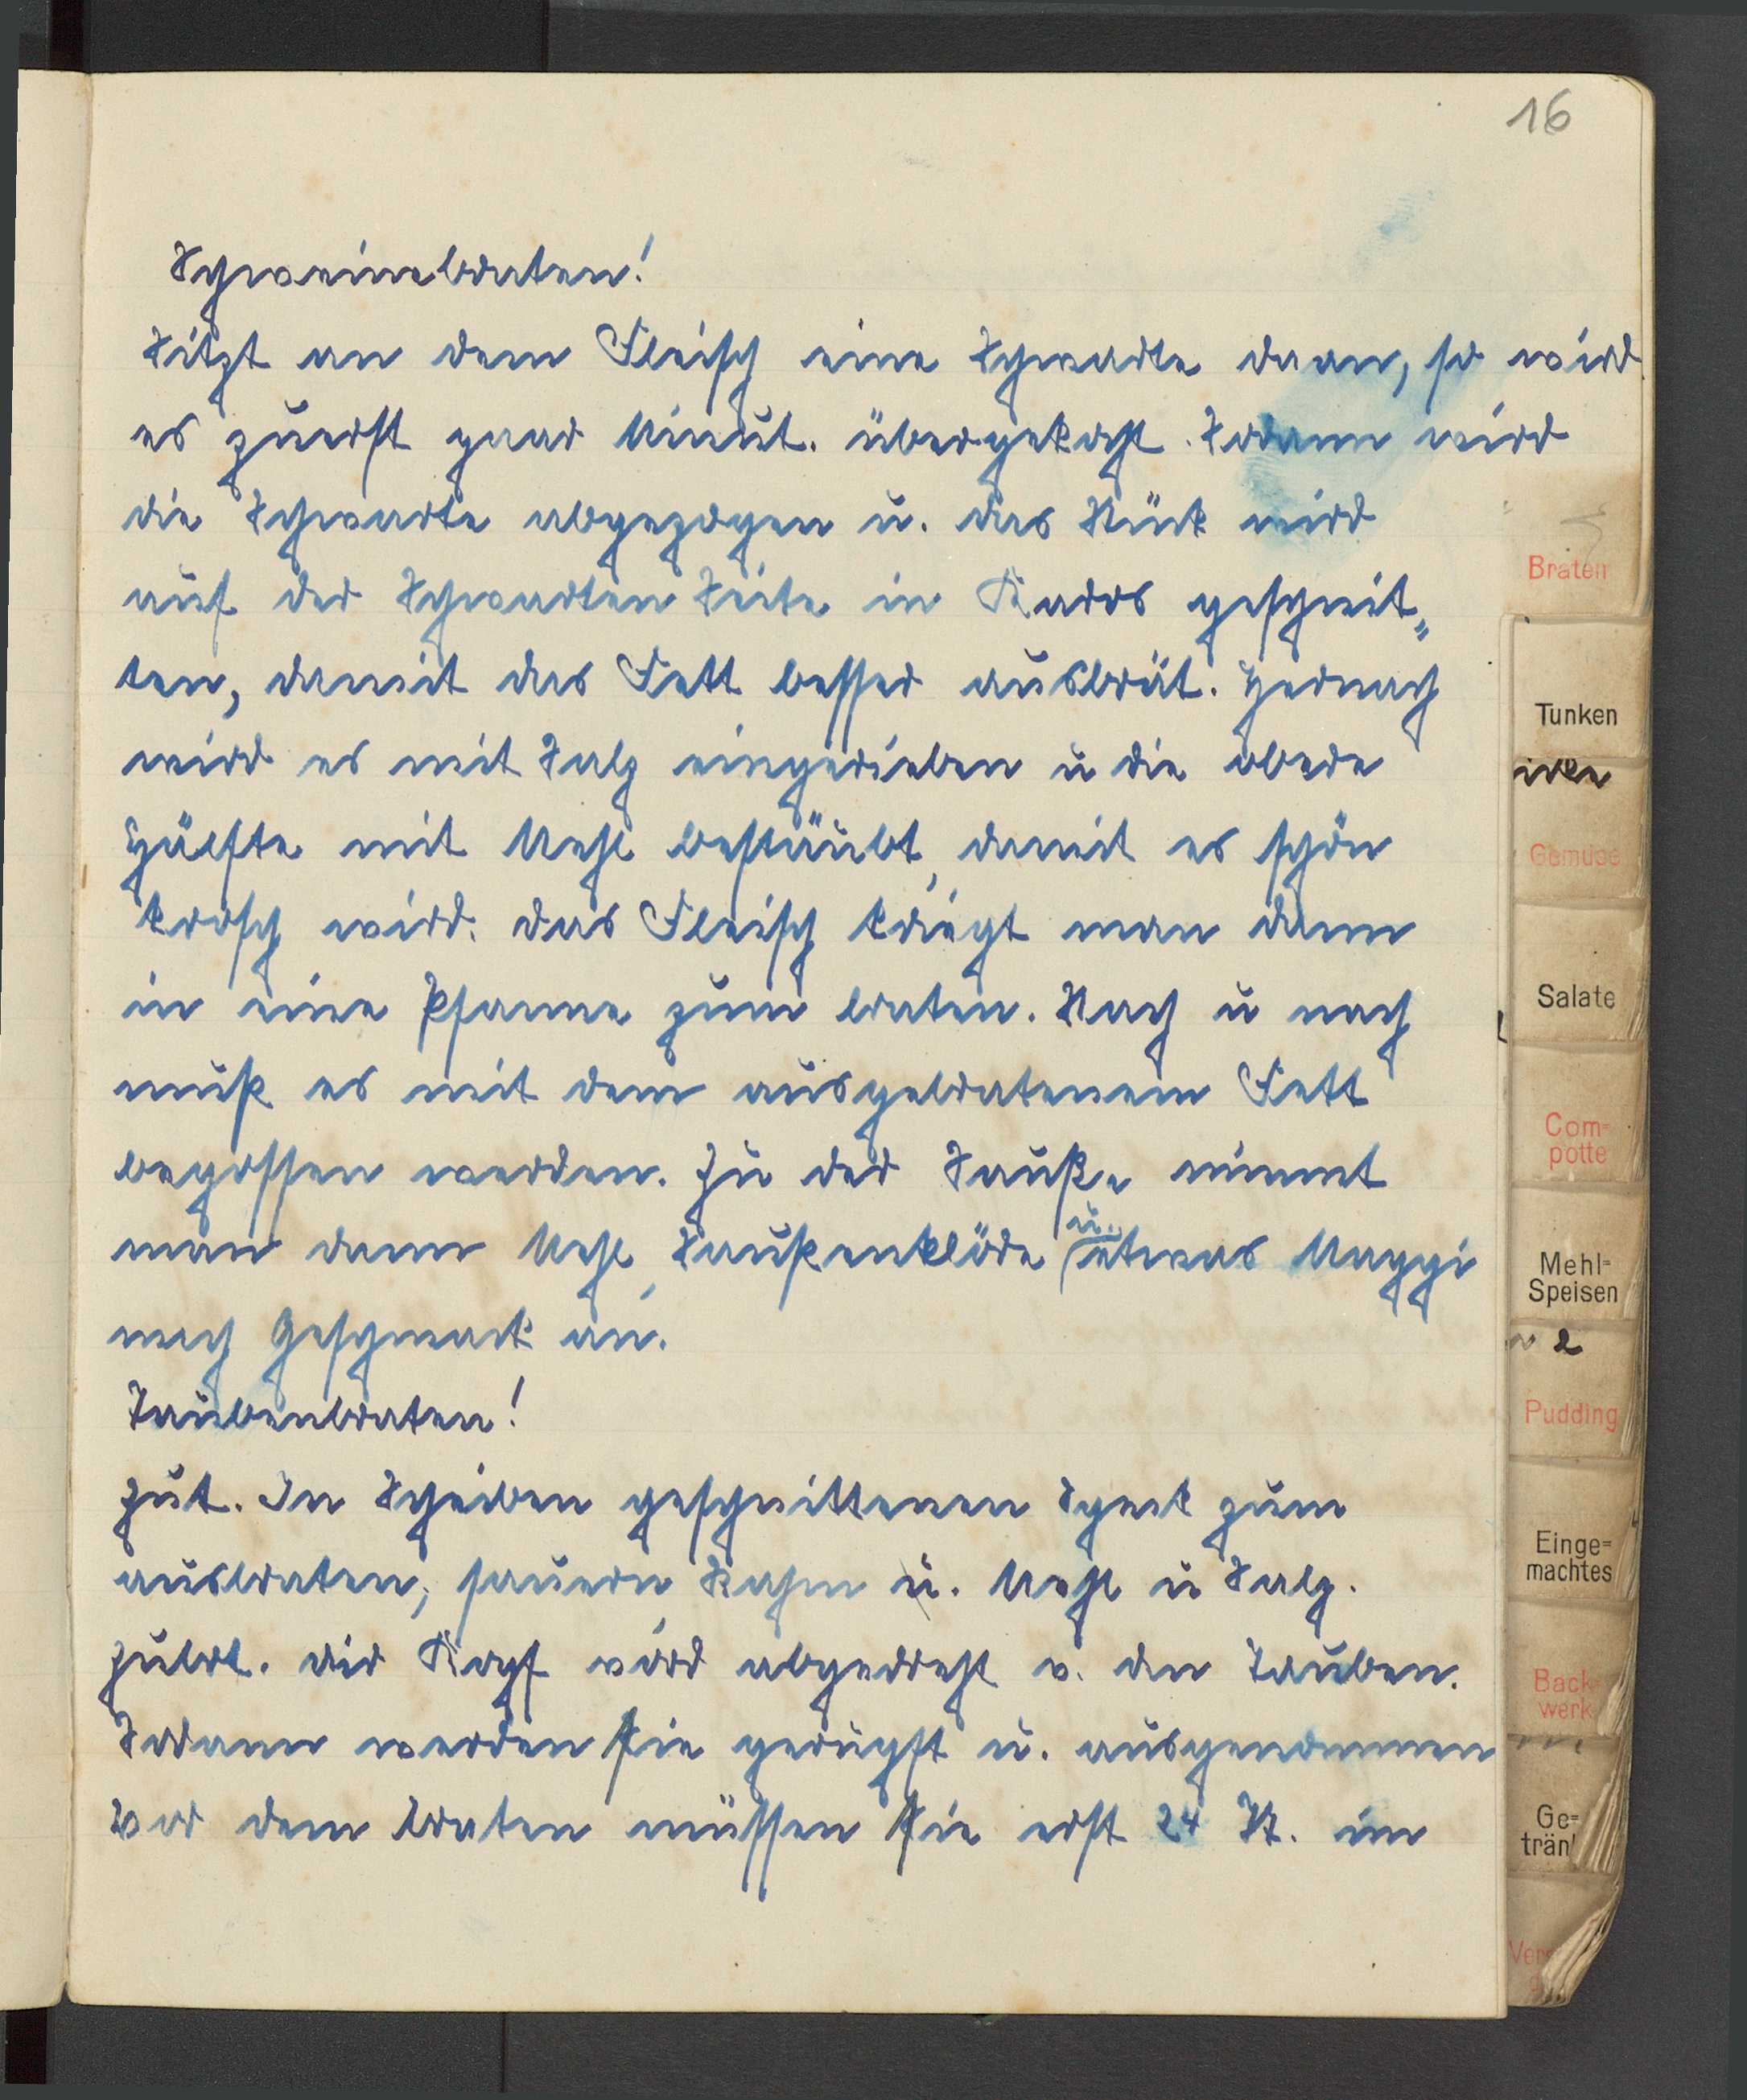 16
Schweinebraten!
Sitzt an dem Fleisch eine Schwarte daan, so wird
es zuerst paar Minut. übergekocht. Sodann wird
die Schwarte abgezogen u. das Stück wird
auf der Schwarten Seite in Karos geschnit„
ten, damit das Fett besser ausbrät. Hernach
wird es mit Salz eingerieben u die obere
Hälfte mit Mehl bestäubt, damit es schön
krosch wird. das Fleisch kriegt man dann
in eine Pfanne zum braten. Nach u nach
muß es mit dem ausgebratenem Fett
begossen werden. Zu der Sauße nimmt
u.
man dann Mehl, Saußenklöde etwas Maggi
nach Geschmack an.
Taubenbraten!
Zut. In Scheiben geschnittenen Speck zum
ausbraten, sauern Rahm u. Mehl u Salz.
Zubrt. der Kopf wird abgedreht v. den Tauben.
Sodann werden sie gerupft u. ausgenommen
Vor dem braten müssen sie erst 24 St. im
Braten
Tunken
Gemüse
Salate
Com-
potte
Mehl-
Speisen
Pudding
Einge=
machtes
Back-
werk
Ge=
tränk